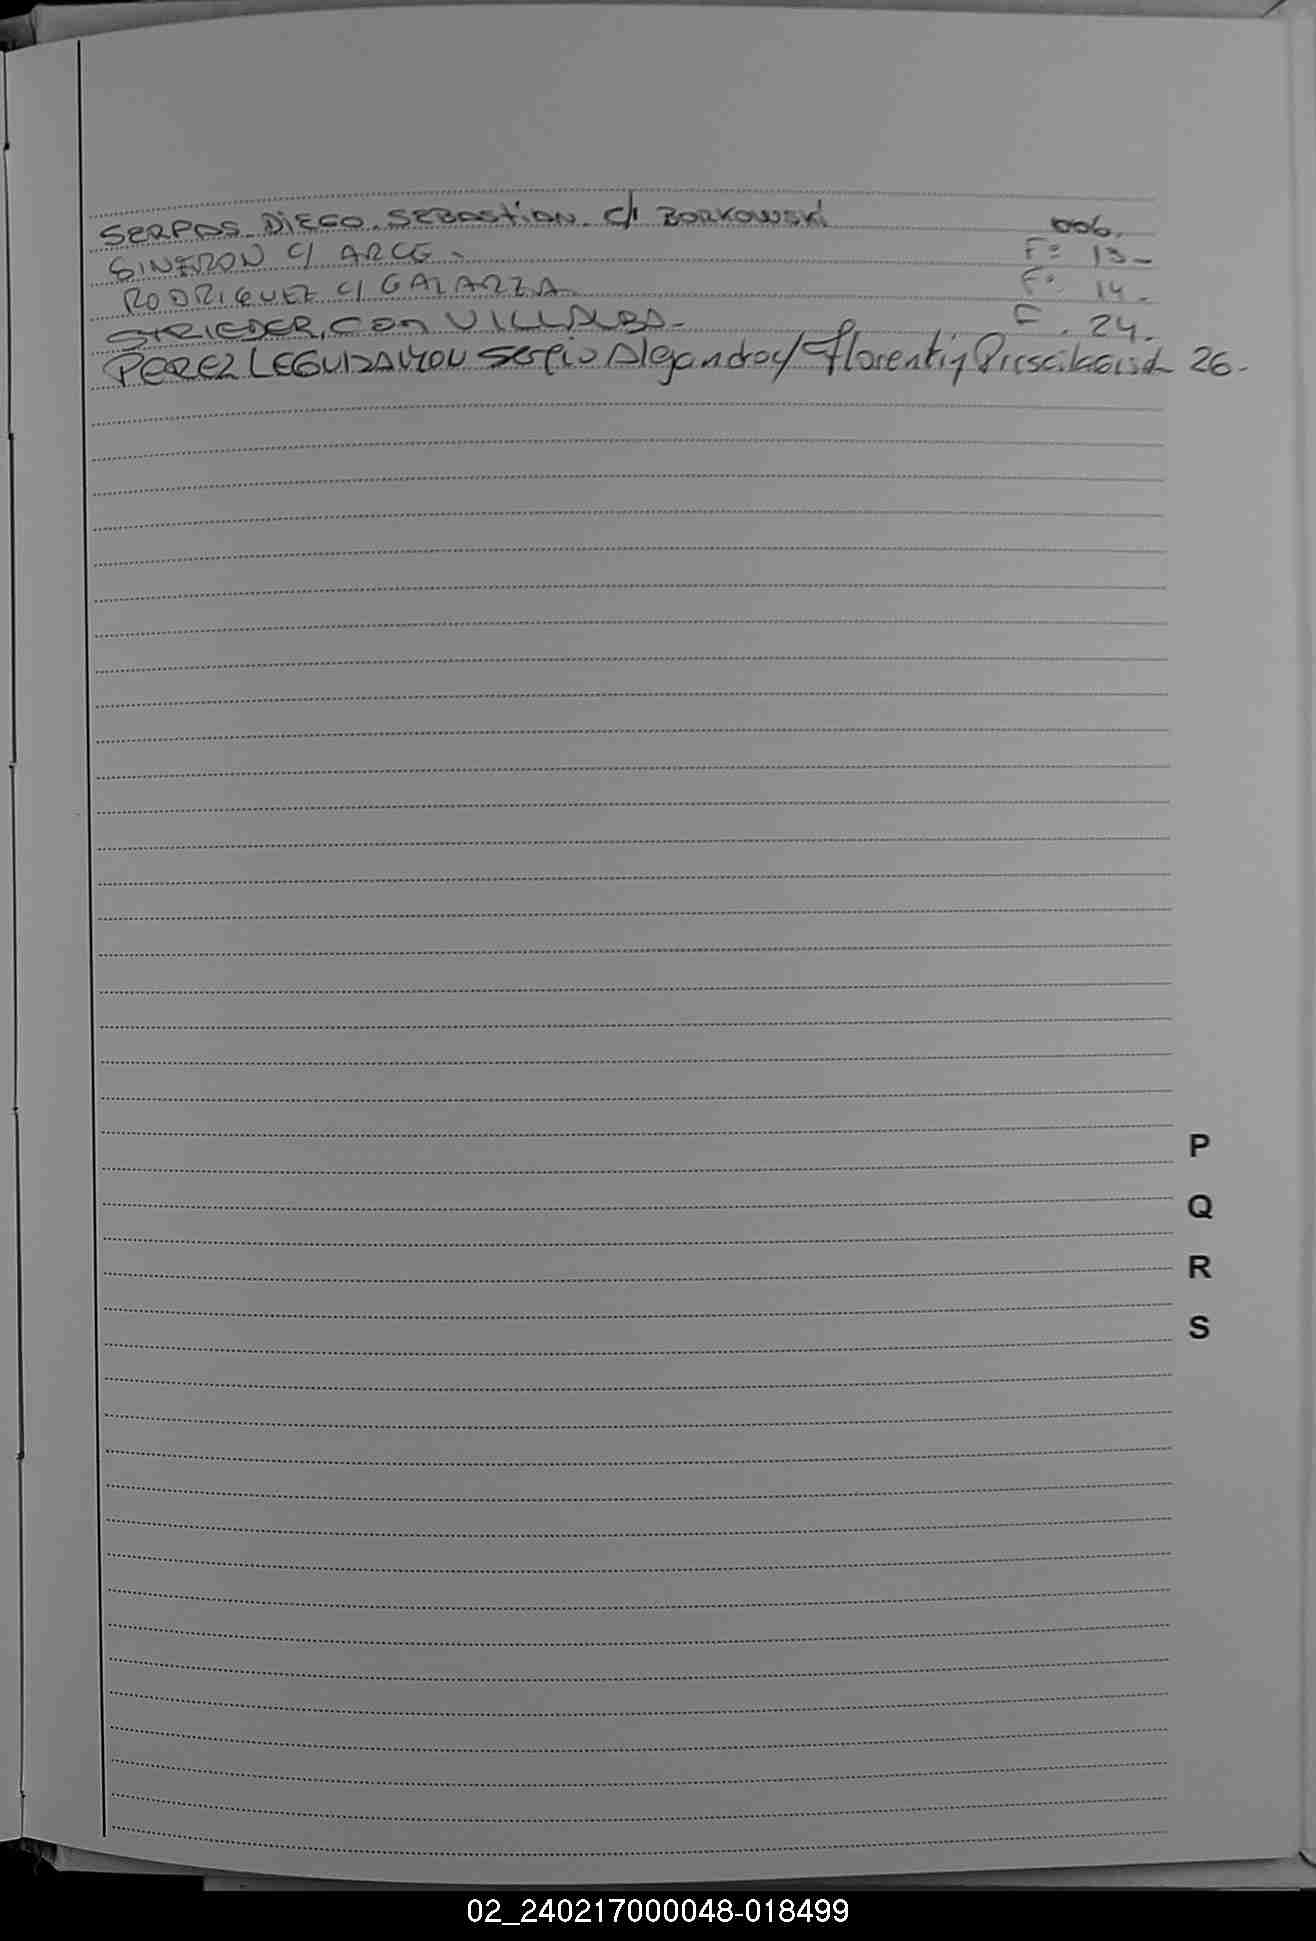 SERPAS DIEGO SEBASTIAN c/ BORKOWSKI 006.
SINFRON C/ ARCE. F: 13-
RODRIGUEZ C/ GALARZA F: 14-
STRIEDER, CON VILLALBA- F. 24.
PEREZ LEGUIZAMON Sergio Alejandro c/ Florentin 26-
P
Q
R
S
02_240217000048-018499